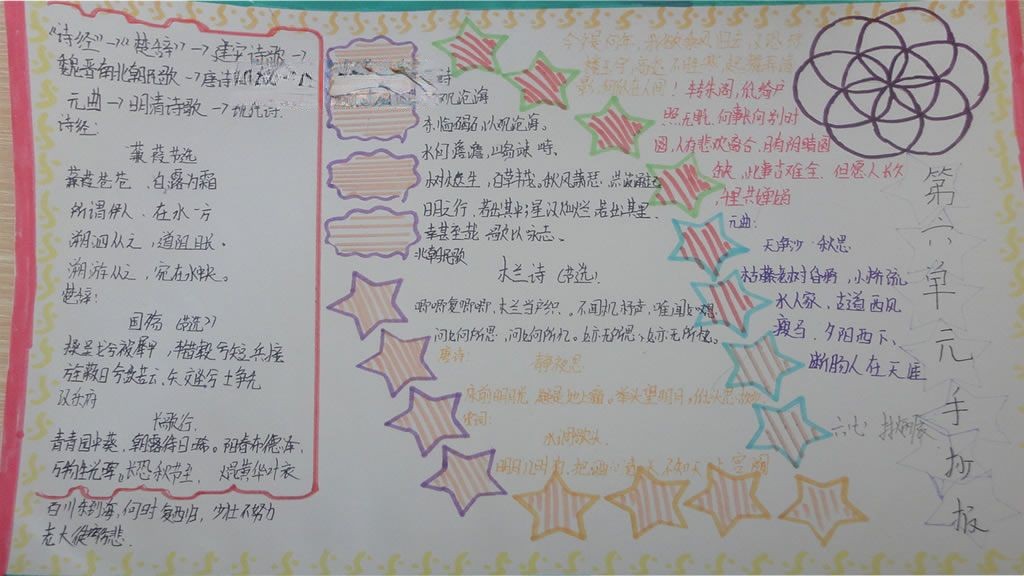 "诗经"→"楚辞"→建安诗歌→
魏晋南北朝民歌→唐诗
元曲→明清诗歌→现代诗.
诗经:
蒹葭 节选
蒹葭苍苍 白露为霜
所谓伊人、在水一方
溯洄从之,道阻且长、
溯游从之,宛在水中央。
楚辞:
国殇 (节选)
操吴戈兮被犀甲,车错毂兮短兵接
旌蔽日兮敌若云、矢交坠兮士争先
汉乐府
长歌行.
青青园中葵、朝露待日晞。阳春布德泽,
万物生光辉。长恐秋节至, 焜黄华叶衰
百川东到海,何时复西归,少壮不努力
老大徒伤悲.
诗
观沧海
东临碣石,以观沧海。
水何澹澹,山岛竦峙、
树木丛生,百草丰茂。秋风萧瑟、洪波涌起
日月之行,若出其中;星汉灿烂,若出其里.
幸甚至哉,歌以咏志。
北朝民歌
木兰诗 (节选)
唧唧复唧唧,木兰当户织。不闻机杼声,唯闻女叹息
问女何所思,问女何所忆。女亦无所思,女亦无所忆。
唐诗: 静夜思
床前明月光,疑是地上霜。举头望明月,低头思故乡
宋词:
水调歌头
明月几时有,把酒问青天、不知天上宫阙
今夕是何年,我欲乘风归去,又恐琼
楼玉宇,高处不胜寒,起舞弄清
影,何似在人间! 转朱阁,低绮户
照无眠,何事长向别时
圆,人有悲欢离合,月有阴晴圆
缺,此事古难全. 但愿人长久
千里共婵娟
元曲:
天净沙 秋思
枯藤老树昏鸦,小桥流
水人家、古道西风
瘦马、夕阳西下、
断肠人在天涯
六七:
第六单元手抄报